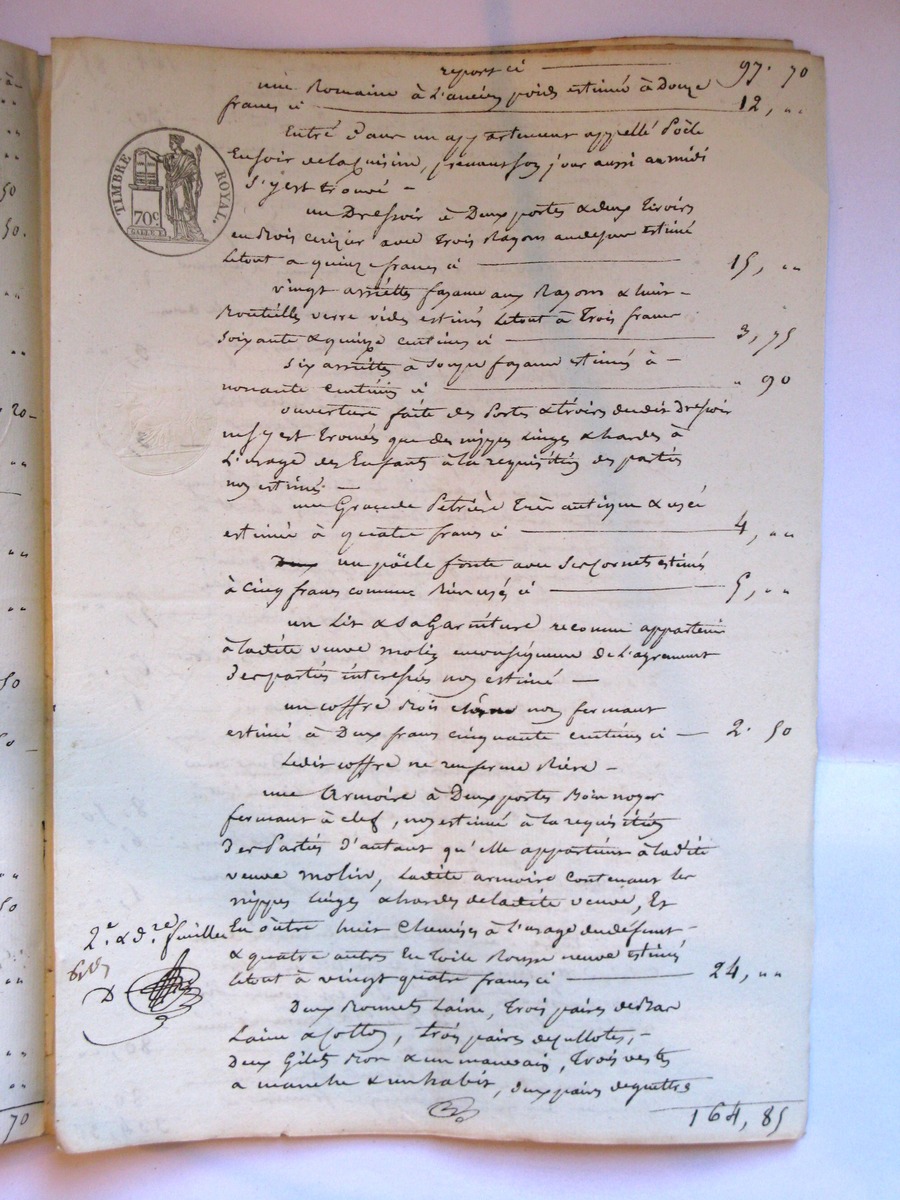 report ci 97. 70
une Romaine à L'ancien poids estimée à Douze
francs ci 12, ""
Entré dans un appartement appellé Poële
En soir de la Cuisine, prenant son jour aussi au midi
S'y est trouvé –
un Dressoir à Deux portes & deux Tiroirs
en Bois cerizier avec Trois Rayons au dessus estimé
Le tout a quinze francs ci 15, ""
vingt assiettes fayance aux Rayons & huit –
Bouteilles verre vides estimés Le tout à Trois francs
soixante & quinze centimes ci 3, 75
Six assiettes à Soupe fayance estimées à –
nonante Centimes ci " 90
ouverture faite des Portes & tiroirs dudit Dressoir
n'sy est trouvés que des nippes Linges & hardes à
L'usage des Enfants à la requisition des parties
non estimés –
une Grande Petrière Très antique & usée
estimée à quatre francs ci 4, ""
Deux un poële fonte avec Ses Cornets estimés
à Cinq francs comme Bien usés ci 5, ""
un Lit & Sa Garniture reconnu appartenir
à ladite veuve molin en conséquence de L'agrement
Des parties interessées non estimé –
un coffre Bois non fermant
estimé à Deux francs cinquante centimes ci – 2. 50
Ledit coffre ne renferme Rière –
une Armoire à Deux portes Bois noyer
fermant à clef, non estimé à la requisition
Des Parties D'autant qu'elle appartient à ladite
veuve molin, Ladite armoire contenant les
nippes Linges & hardes de ladite veuve, Et
En oûtre huit Chemises à l'usage du défunt –
& quatre autres En toile Rousse neuve estimés
Le tout à vingt quatre francs ci 24, ""
Deux Bonnets Laine, Trois paires de Bas
Laine & Cotton, trois paires de cullotes, –
Deux Gilets Bon & un mauvais, Trois vestes
a manche & un habit, deux paires de guettres
164, 85
TIMBRE ROYAL.
70c
2.e & D.re feuilles
70